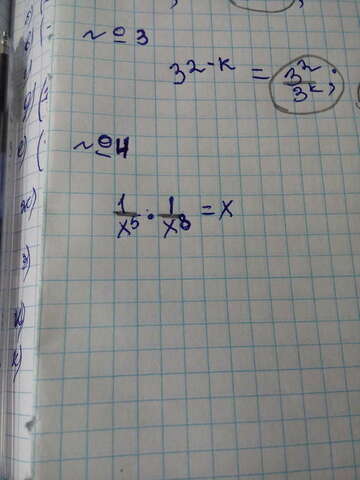 №3
3^{2-k} = \frac{3^2}{3^k};
№4
\frac{1}{x^5} \cdot \frac{1}{x^8} = x
ж)
з)